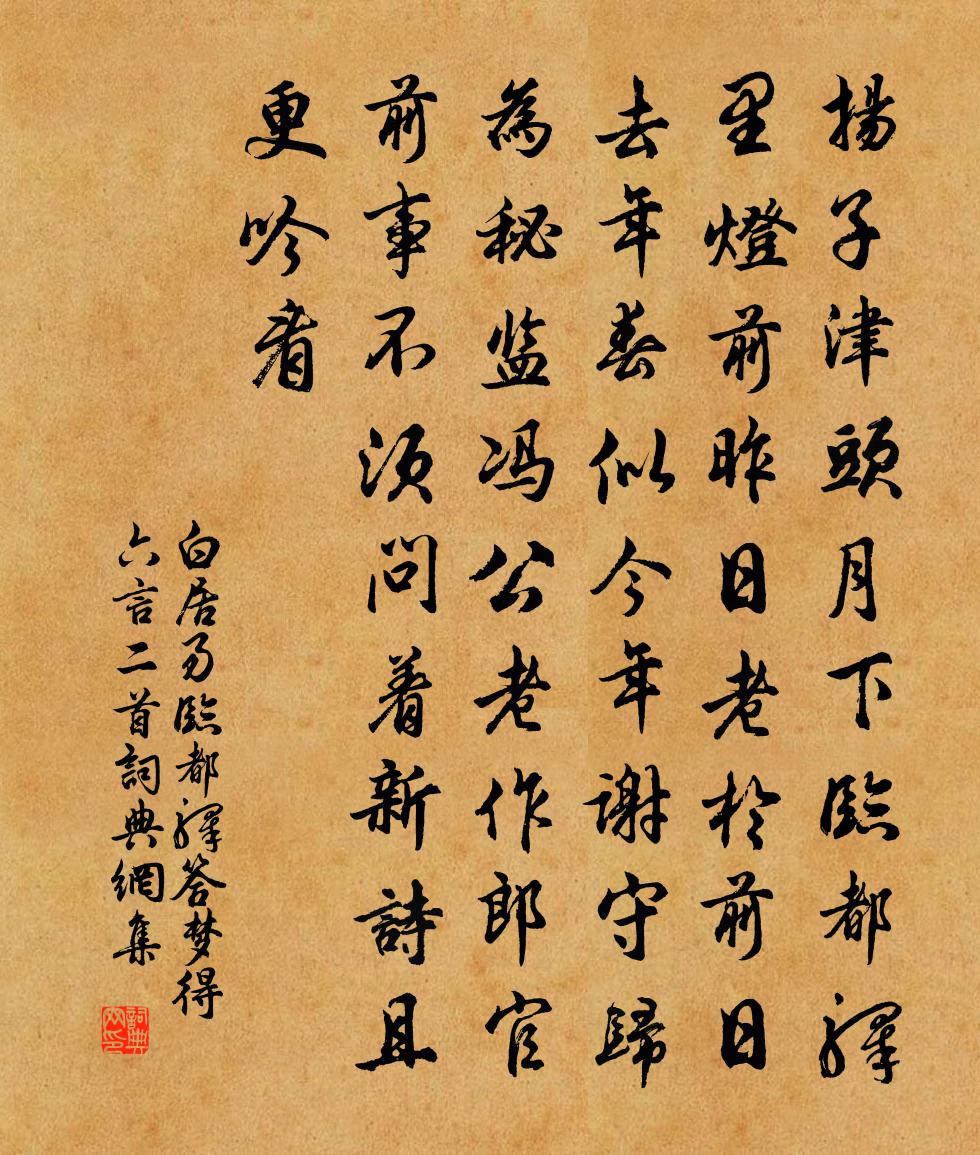 揚子津頭月下臨都驛
里燈前昨日老於前日
去年春似今年謝守歸
為秘监冯公老作郎官
前事不须問着新詩且
更吟看
白居易臨都驛答梦得
六言二首詞典網集
詞典网印